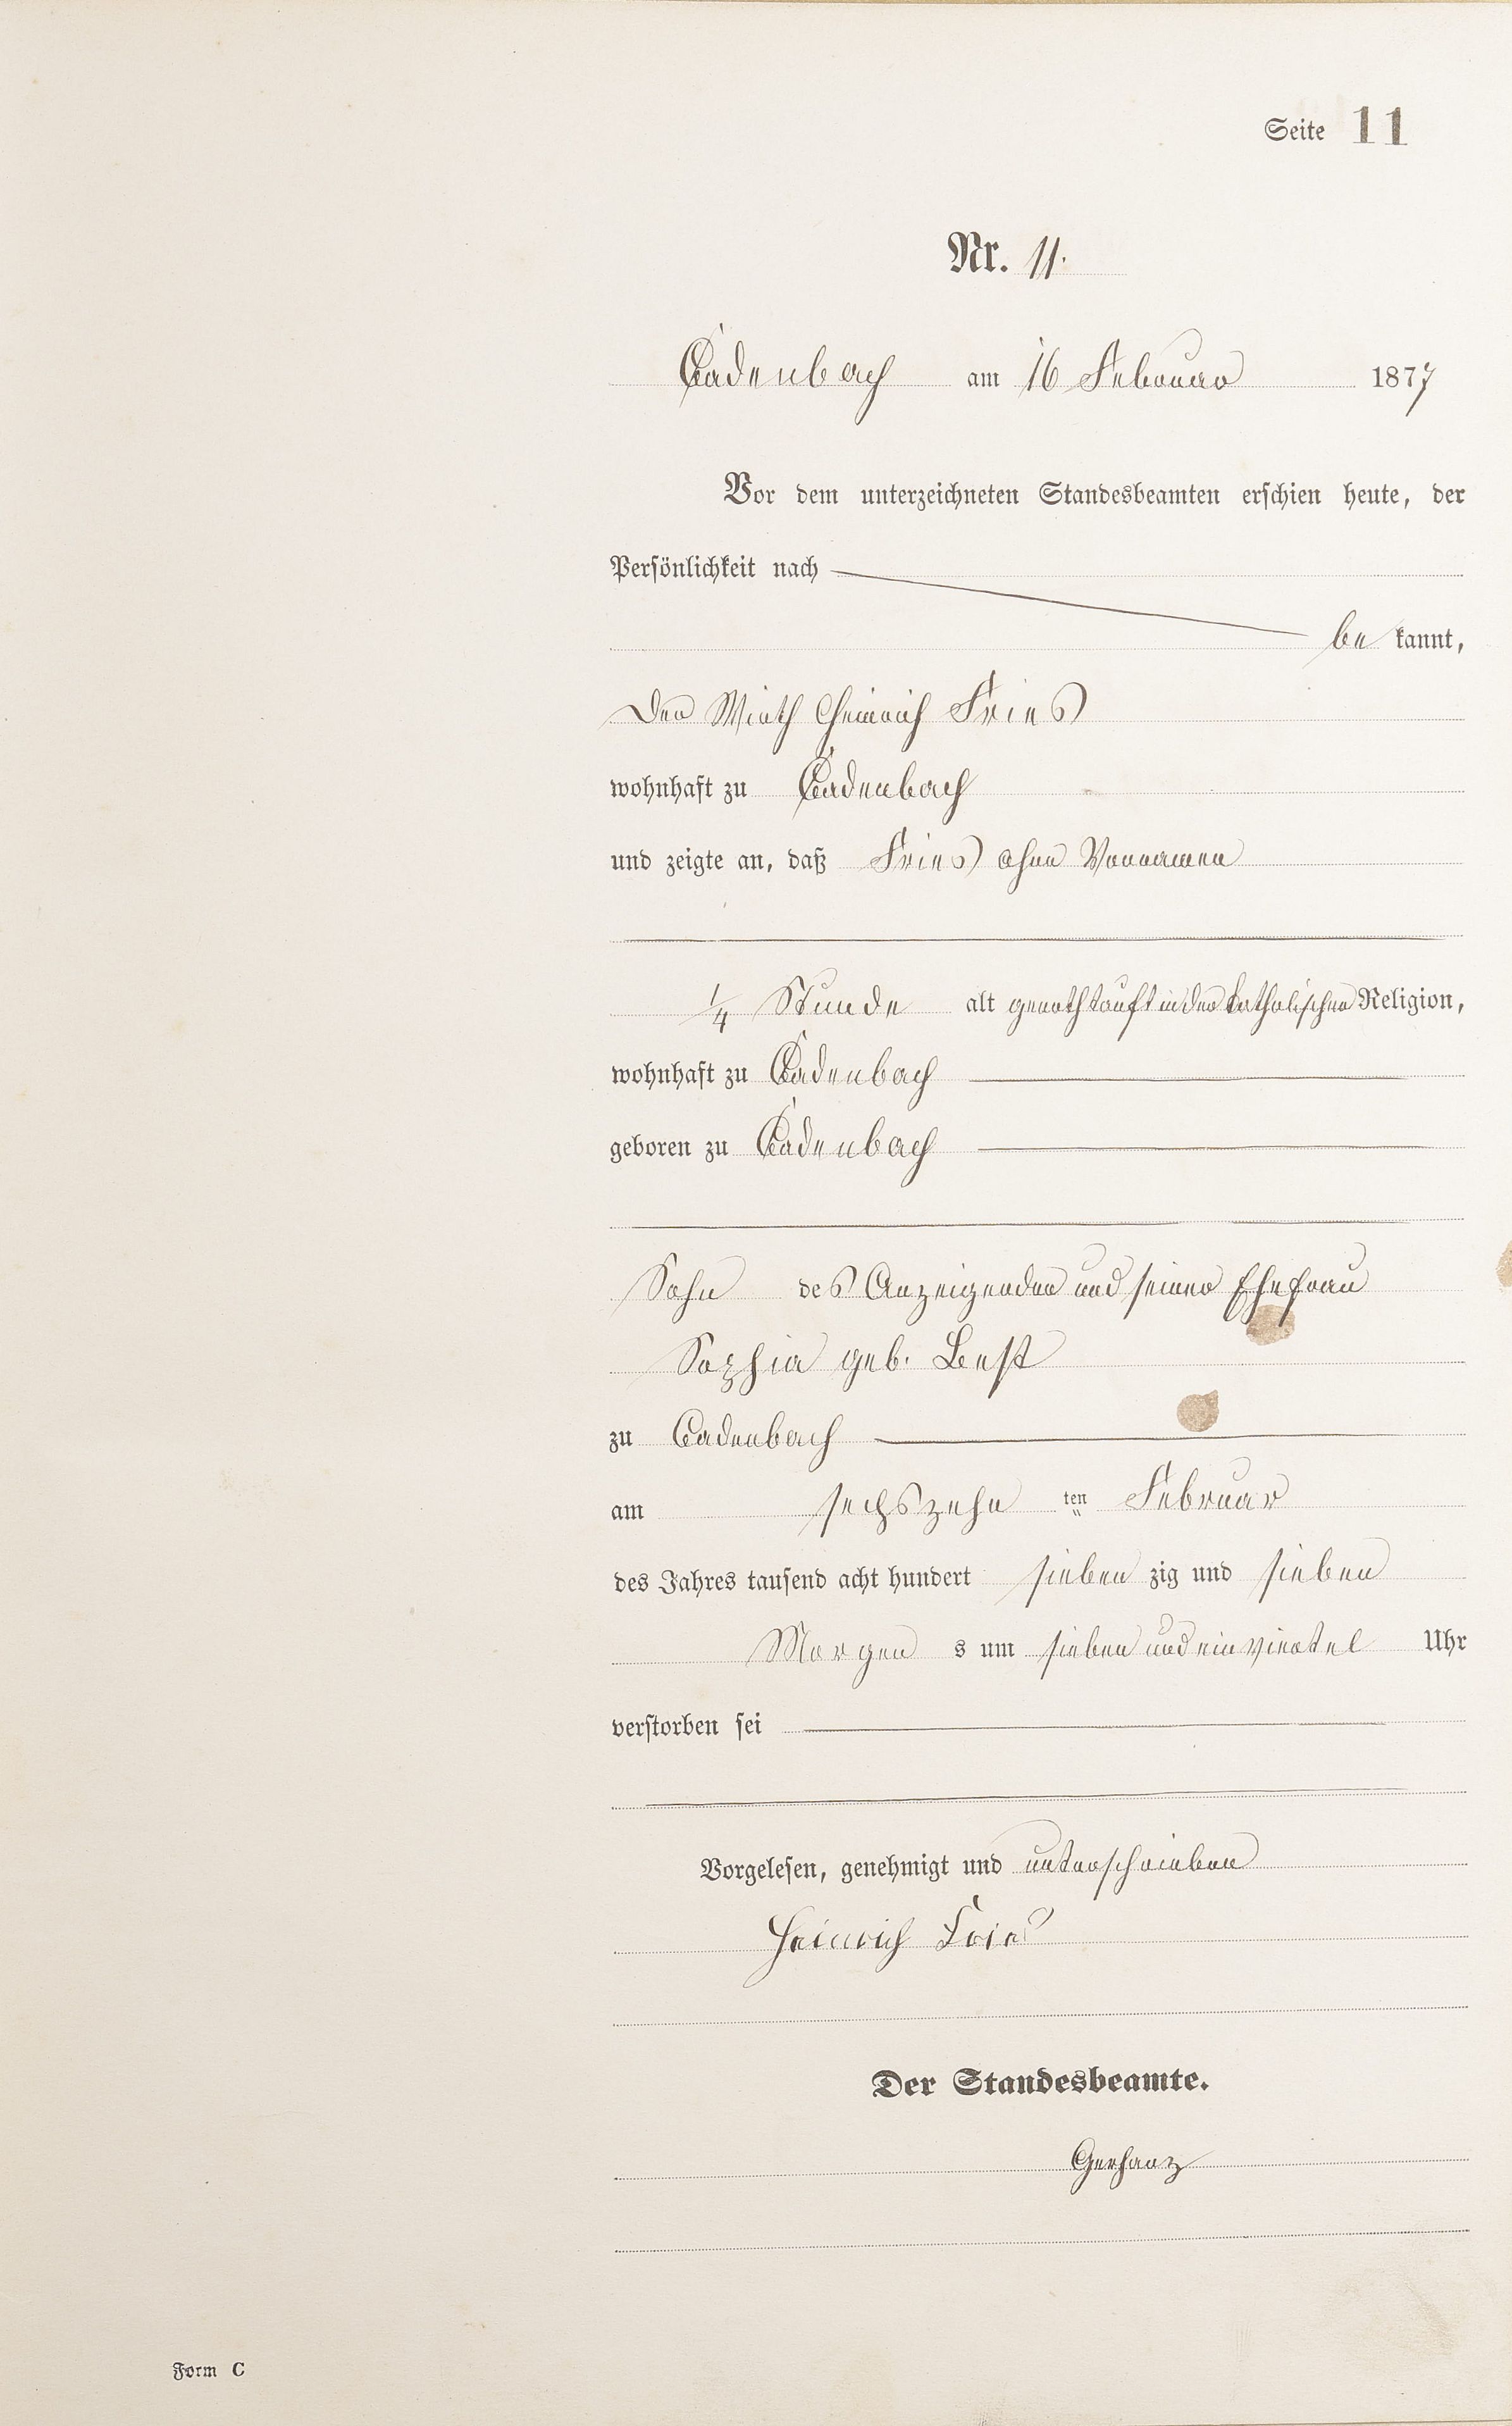 Seite 11
Nr. 11.
Cadenbach am 16 Februar 1877
Vor dem unterzeichneten Standesbeamten erschien heute, der
Persönlichkeit nach
be kannt,
Der Wirth Heinrich Fries
wohnhaft zu Cadenbach
und zeigte an, daß Fries ohne Vornamen
1/4 Stunde alt genothtauft in der katholischen Religion,
wohnhaft zu Cadenbach
geboren zu Cadenbach
Sohn des Anzeigenden und seiner Ehefrau
Sophia geb. Best
zu Cadenbach
am sechszehn ten Februar
des Jahres tausend acht hundert sieben zig und sieben
Morgen s um sieben und ein viertel Uhr
verstorben sei
Vorgelesen, genehmigt und unterschrieben
Heinrich Fries
Der Standesbeamte.
Gerharz
Form C